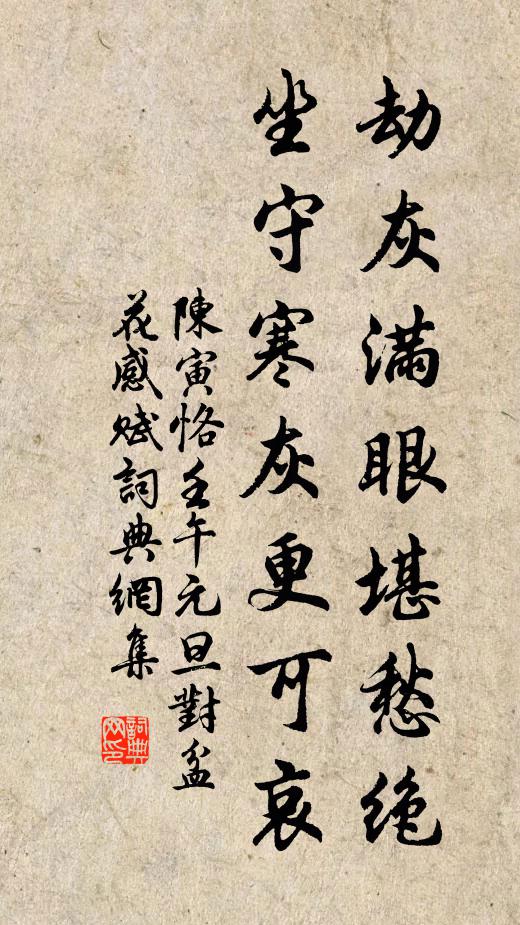 劫灰滿眼堪愁绝
坐守寒灰更可哀
陳寅恪壬午元旦對盆
花感赋詞典網集
詞典
网印